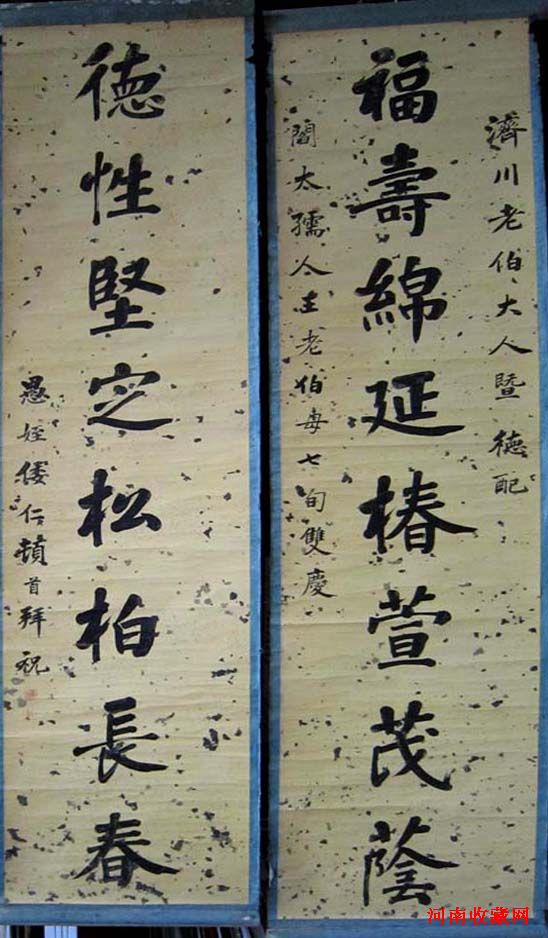 濟川老伯大人暨德配
福壽綿延椿萱茂蔭
閻太孺人老伯母七旬雙慶
德性堅定松柏長春
愚姪倭仁頓首拜祝
河南收藏网